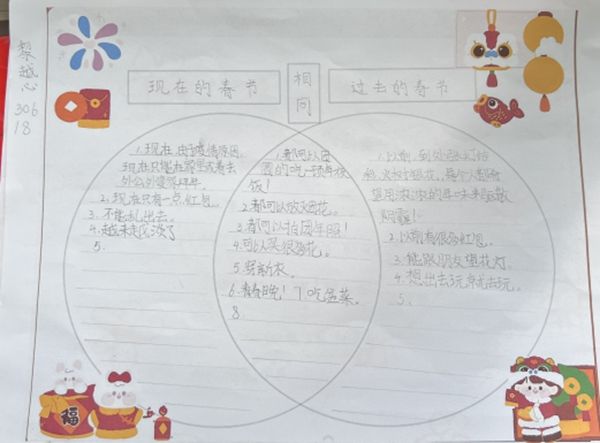 黎越心
306
18
现在的春节
相同
过去的春节
1.现在,由于疫情原因,
现在只能在家里或者去
外公外婆家拜年。
2.现在只有一点红包。
3.不能乱出去。
4.越来越没了
5.
1.都可以团
圆的吃一顿年夜
饭!
2.都可以放烟花。
3.都可以拍团年照!
4.可以买很多花。
5.穿新衣。
6.看春晚!7吃盆菜。
8
1.以前,到处张灯结
彩,火树银花,每个人都
浓浓的年味来
阴霾!
2.以前有很多红包。
3.能跟朋友逛花灯。
4.想出去玩就去玩。
5.
福